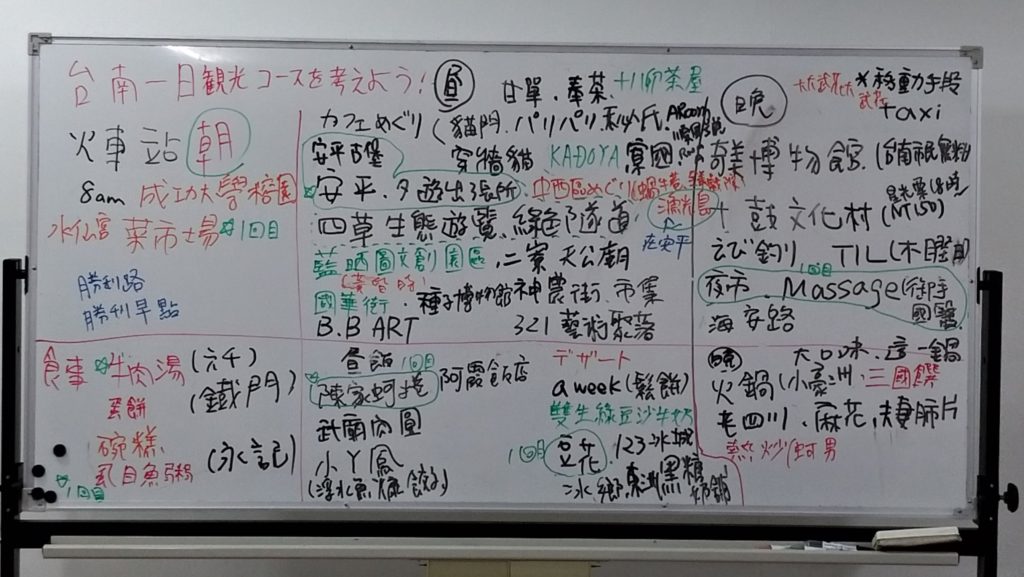 台南一日観光コースを考えよう!
朝
火車站
8am 成功大學榕園
水仙宮 菜市場 1回目
勝利路
勝利早點
昼
甘單.奉茶.十八卯茶屋
カフェめぐり(貓門.パリパリ.秘氏.
安平古堡
穿牆貓 KADOYA 寮國
安平.夕遊出張所.中西區めぐり(蝸牛巷.
漁光島
在安平
四草生態遊覧.綠色隧道
藍晒圖文創園區.二寮 天公廟
國華街.種子博物館 神農街.市集
B.B ART 321藝術聚落
晚
*移動手段
taxi
奇美博物館.(台南市民無料)
十鼓文化村(星光票
(NT150)
えび釣り TIL(木曜
1回目
夜市.Massage(御手
國醫)
海安路
食事 牛肉湯(六千)
(鐵門)
蛋餅
碗糕.
虱目魚粥 (永記)
1回目
昼飯 1回目
陳家蚵捲 阿霞飯店
武廟肉圓
小丫鳳
(浮水魚焿 餃子)
デザート
a week(鬆餅)
雙生綠豆沙牛奶
1回目 豆花.123冰城
冰鄉 黑糖
晚
大口味.這一鍋
火鍋(小豪洲.三國饌
老四川.麻花.夫妻肺片
熱炒(蚵男